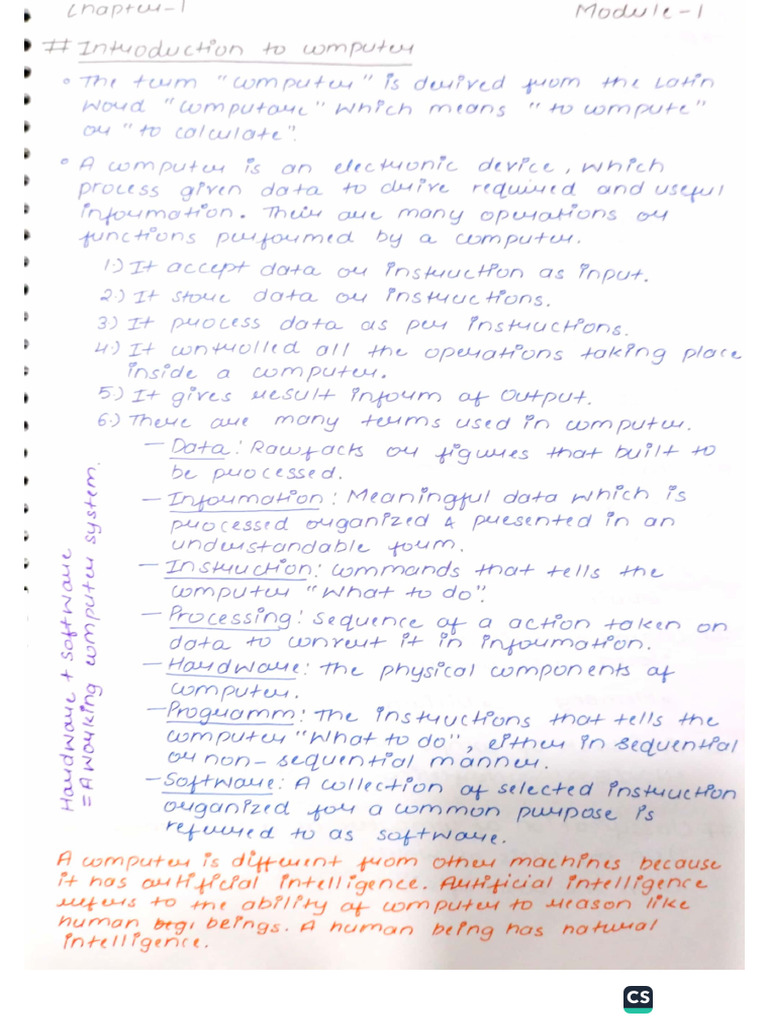 Chapter-1
Module-1
# Introduction to computer
• The term "computer" is derived from the Latin
word "computare" which means "to compute"
or "to calculate".
• A computer is an electronic device, which
process given data to drive required and useful
information. Their are many operations or
functions performed by a computer.
1.) It accept data or instruction as input.
2.) It store data or instructions.
3.) It process data as per instructions.
4.) It controlled all the operations taking place
inside a computer.
5.) It gives result inform of Output.
6.) There are many terms used in computer.
— Data: Raw facts or figures that built to
be processed.
— Information: Meaningful data which is
processed organized & presented in an
understandable form.
— Instruction: commands that tells the
computer "What to do".
— Processing: Sequence of a action taken on
data to convert it in information.
— Hardware: The physical components of
computer.
— Programm: The instructions that tells the
computer "What to do", either in sequential
or non-sequential manner.
— Software: A collection of selected instruction
organized for a common purpose is
referred to as software.
Hardware + software
= A working computer system.
A computer is different from other machines because
it has artificial intelligence. Artificial intelligence
refers to the ability of computer to reason like
human begi beings. A human being has natural
intelligence.
CS